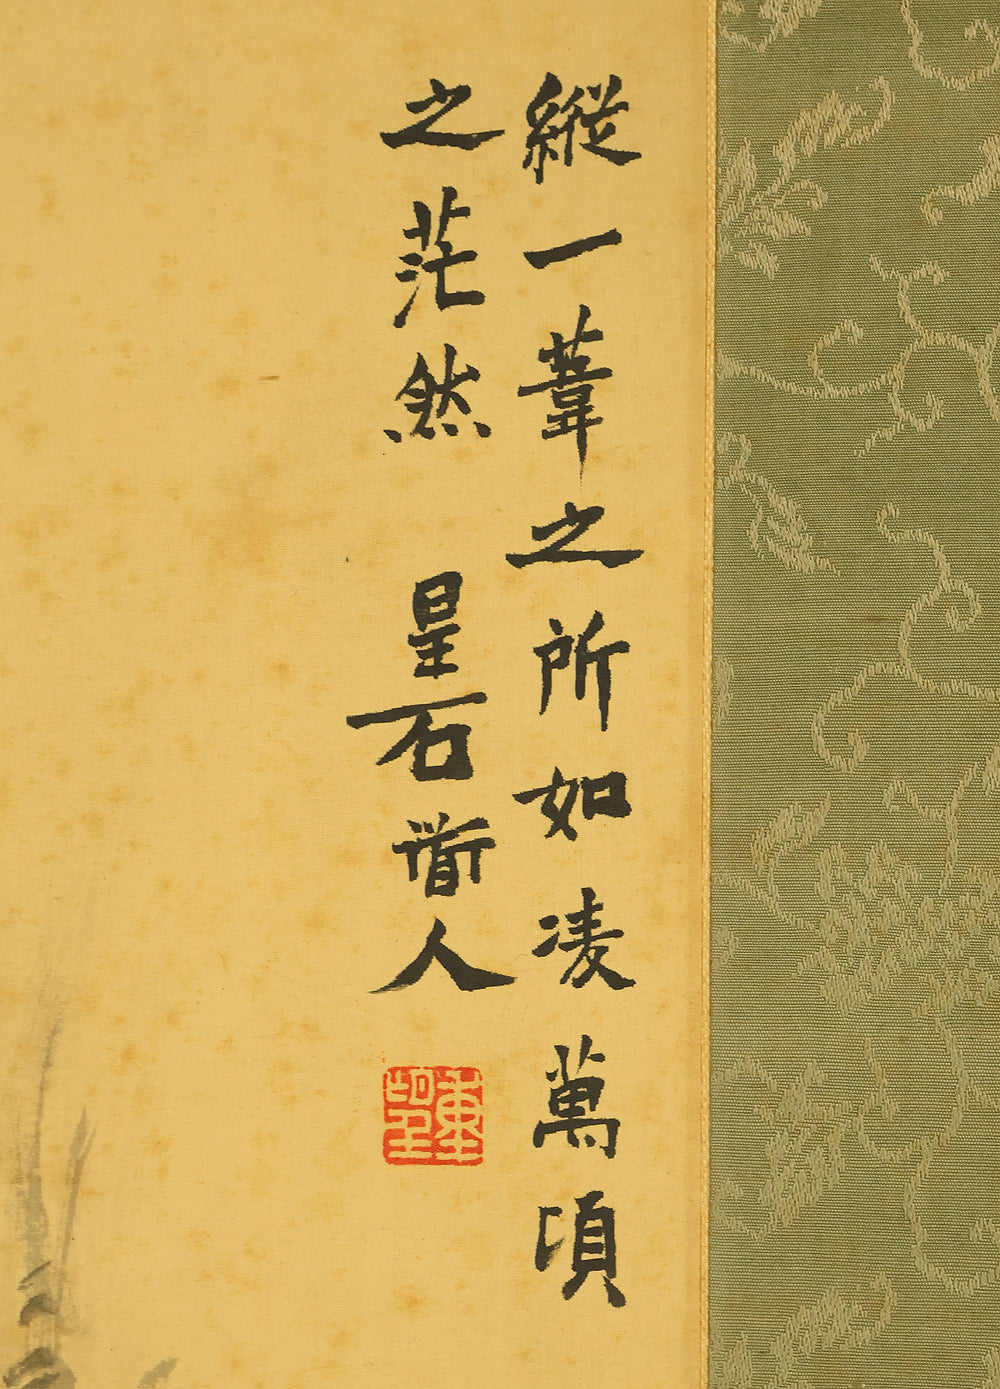 縱一葦之所如凌萬頃
之茫然 星石道人